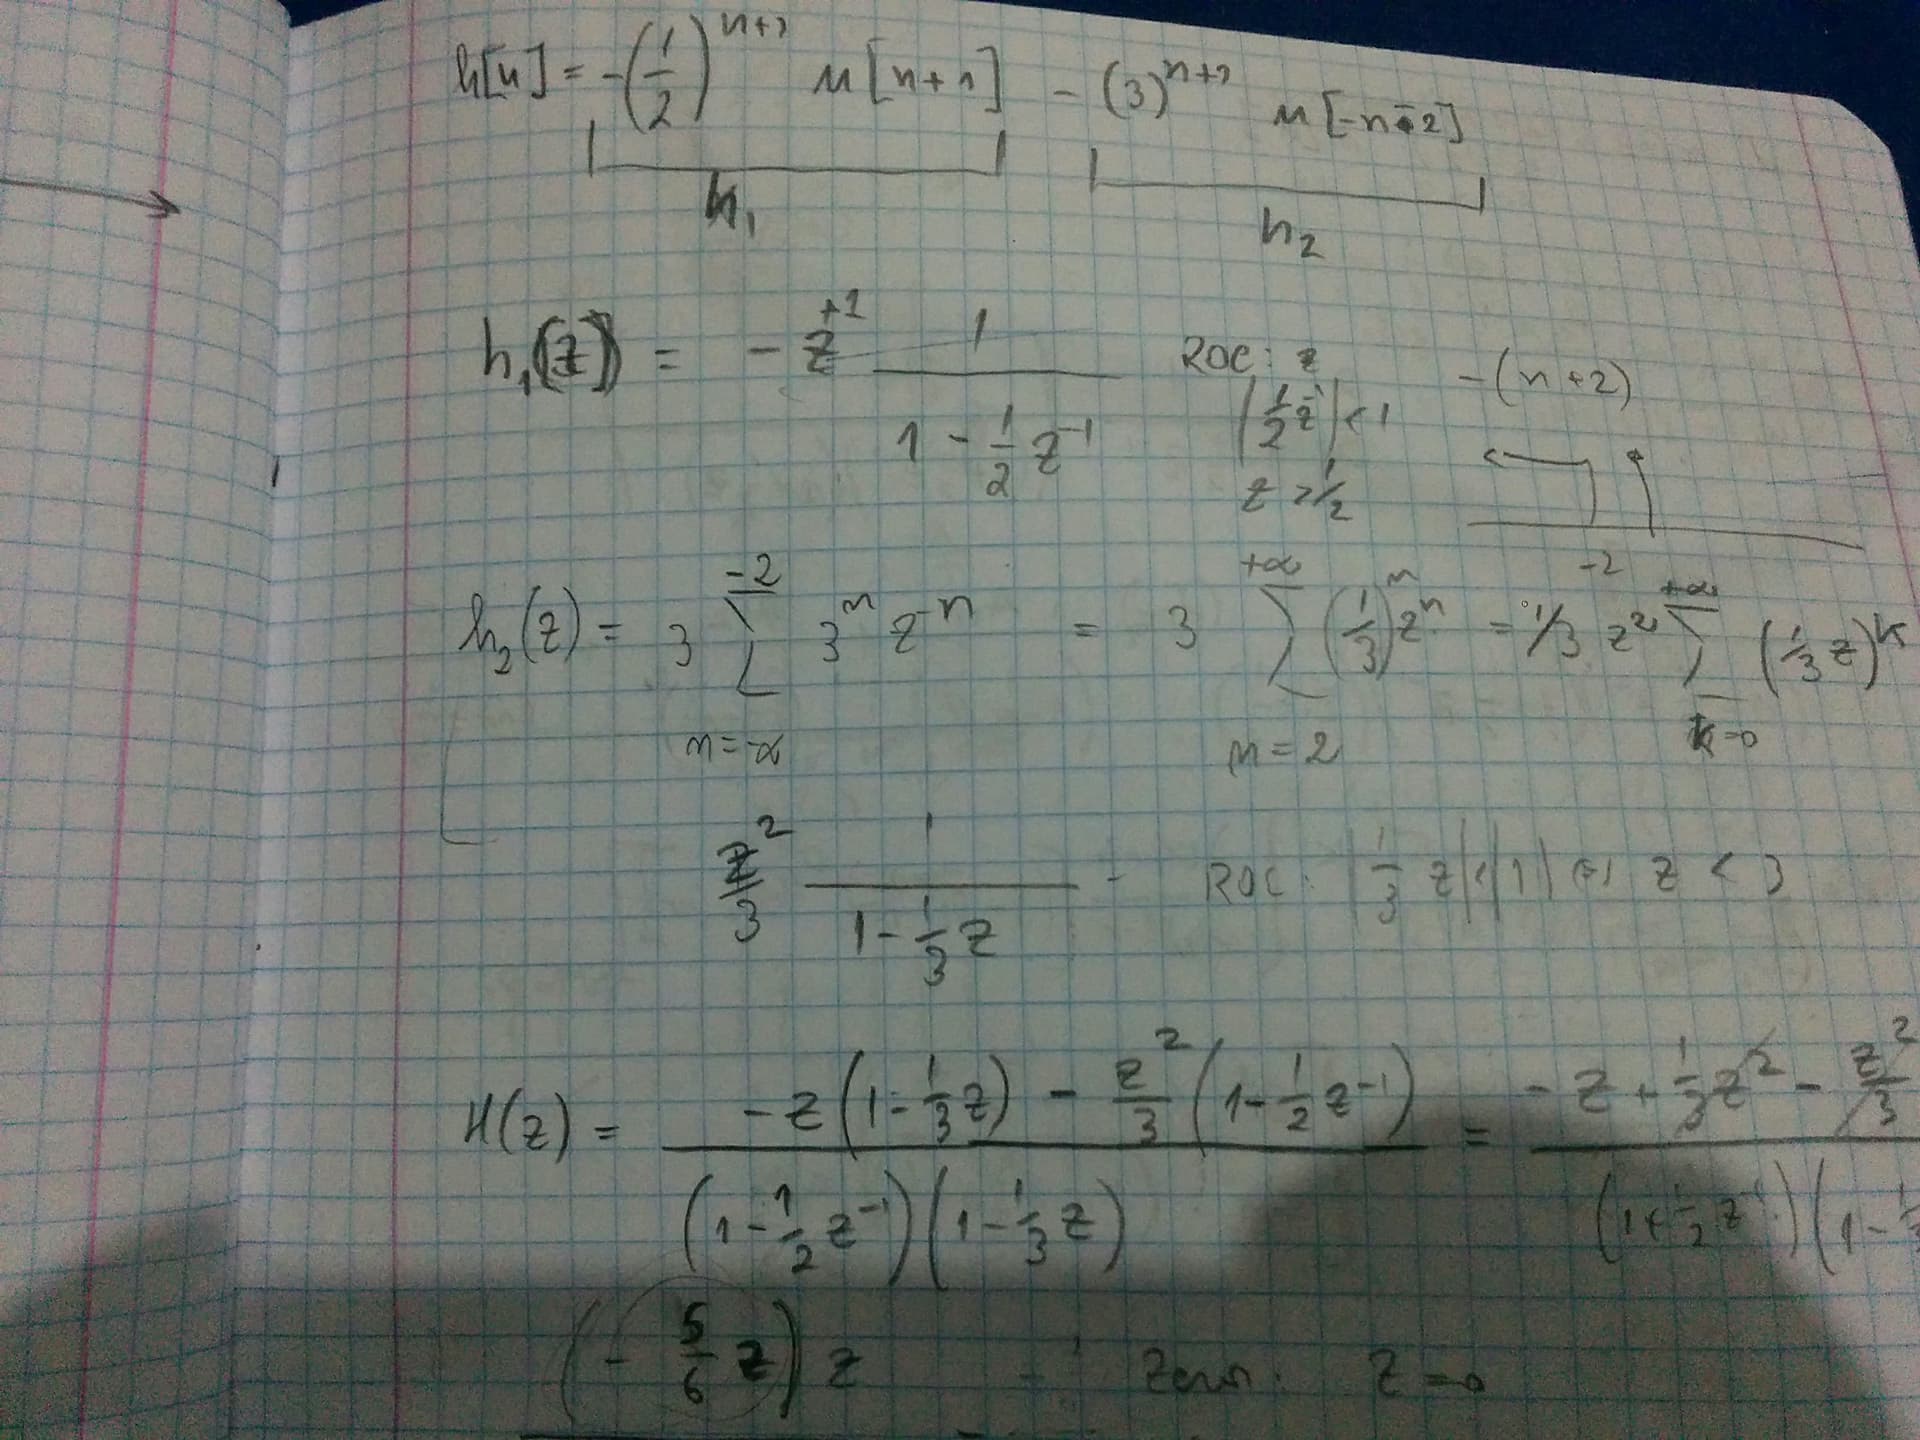 h[n] = -(1/2)^{n+1} u[n+1] - (3)^{n+1} u[-n-2]
h_1 h_2
h_1(z) = -z^{+1} \frac{1}{1 - \frac{1}{2} z^{-1}} ROC: z
|\frac{1}{2} z^{-1}| < 1 -(n+2)
z > 1/2
-2
h_2(z) = 3 \sum_{n=-∞}^{-2} 3^n z^{-n} = 3 \sum_{n=2}^{+∞} (\frac{1}{3})^n z^n = 1/3 z^2 \sum_{k=0}^{+∞} (\frac{1}{3} z)^k
\frac{z^2}{3} \frac{1}{1 - \frac{1}{3} z} - ROC: |\frac{1}{3} z| < |1| z < 3
H(z) = \frac{-z(1 - \frac{1}{3} z) - \frac{z^2}{3} (1 - \frac{1}{2} z^{-1})}{(1 - \frac{1}{2} z^{-1})(1 - \frac{1}{3} z)} = \frac{-z + \frac{1}{3} z^2 - \frac{z^2}{3}}{(1 + \frac{1}{2} z^{-1})(1 -
(- \frac{5}{6} z) z z = 0